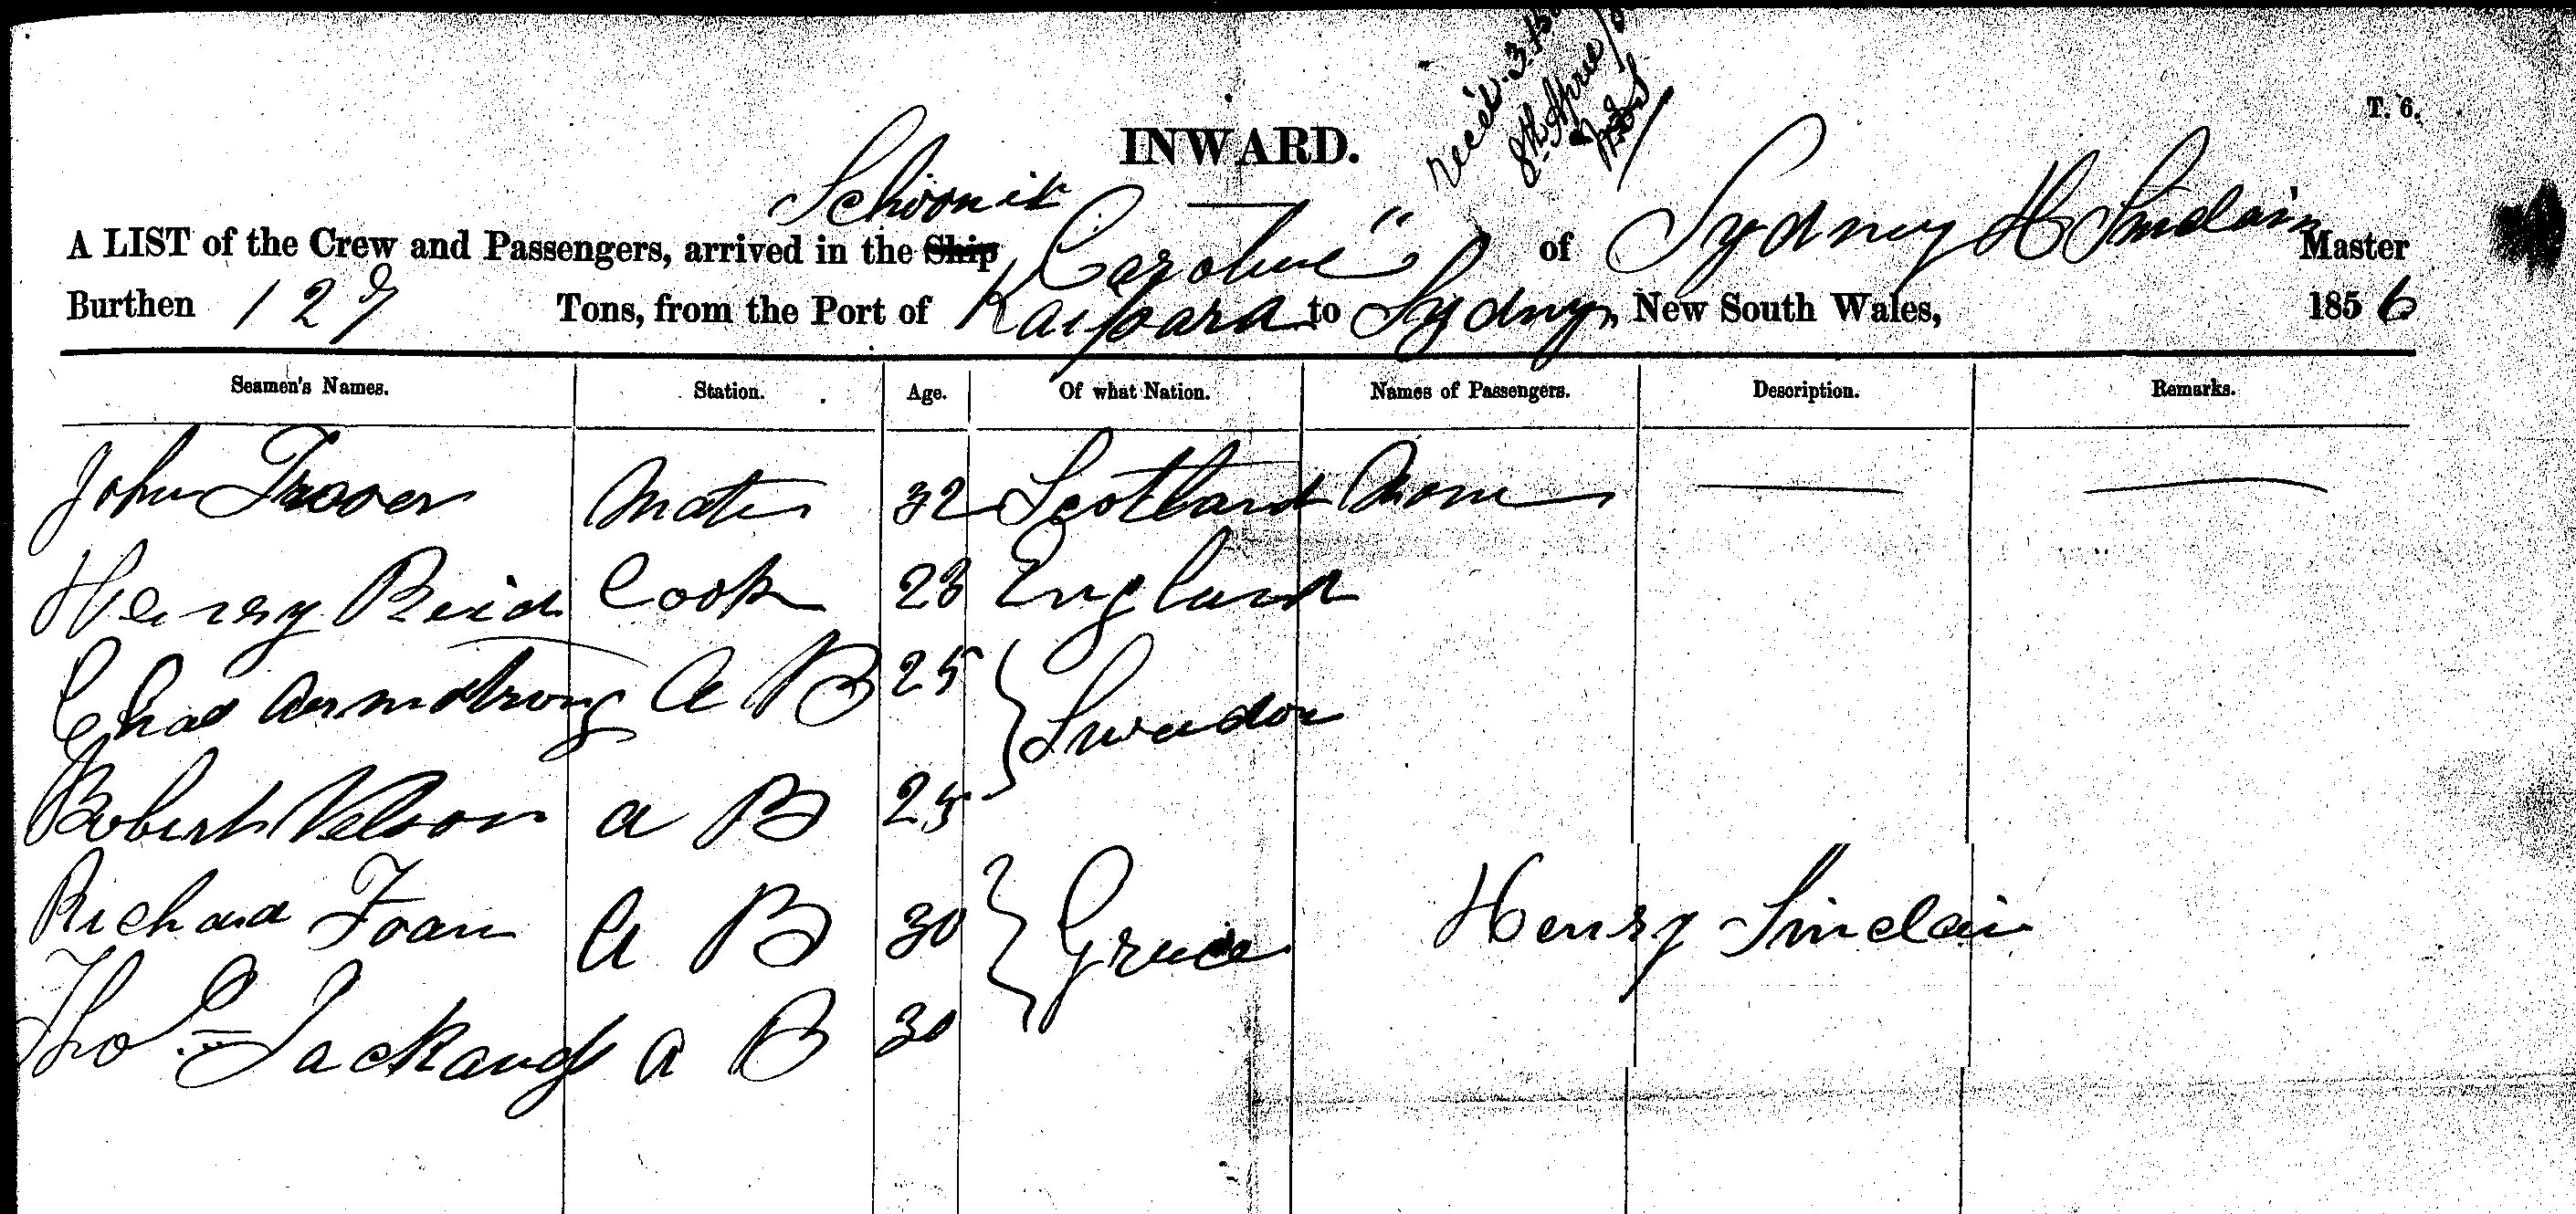 T. 6.
INWARD.
Schooner
A LIST of the Crew and Passengers, arrived in the Ship Caroline" of Sydney H Sinclair Master
Burthen 127 Tons, from the Port of Kaipara to Sydney, New South Wales, 1856
Seamen's Names. Station. Age. Of what Nation. Names of Passengers. Description. Remarks.
John Mate 32 Scotland None
Henry Reid Cook 23 England
Chas Armstrong A B 25 Sweden
Robert Nelson a B 25
Richard Foam A B 30 Greece Henry Sinclair
Thos a B 30